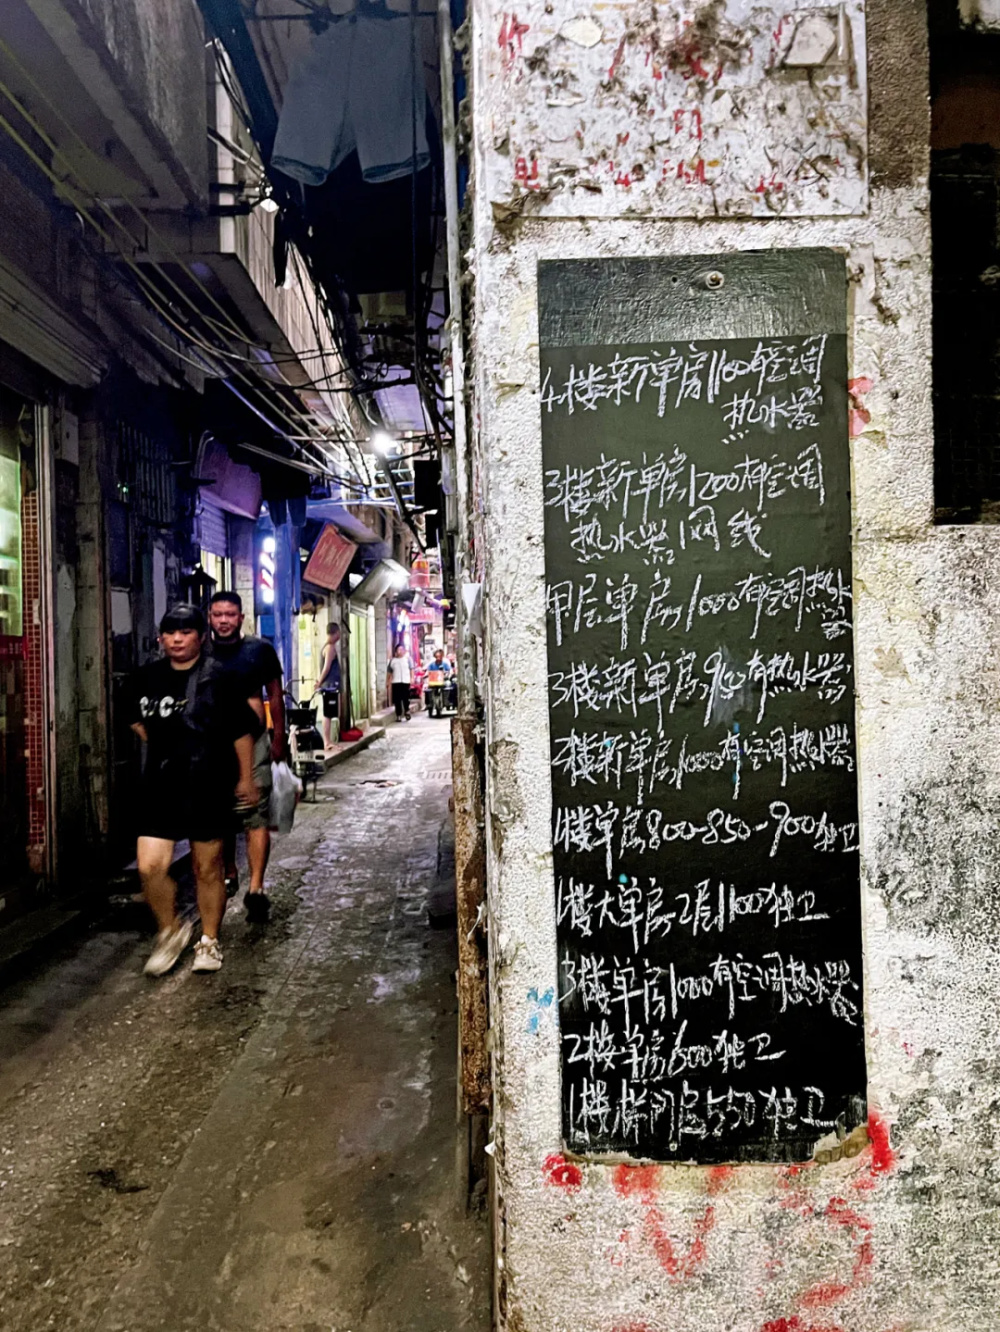 4楼新单房1100有空调
热水器
3楼新单房1200有空调
热水器1网线
甲层单房1000有空调热水器
3楼新单房950有热水器
2楼新单房1000有空调热水器
1楼单房800-850-900独卫
1楼大单房2层1100独卫
3楼单房1000有空调热水器
2楼单房600独卫
1楼梯间房550独卫